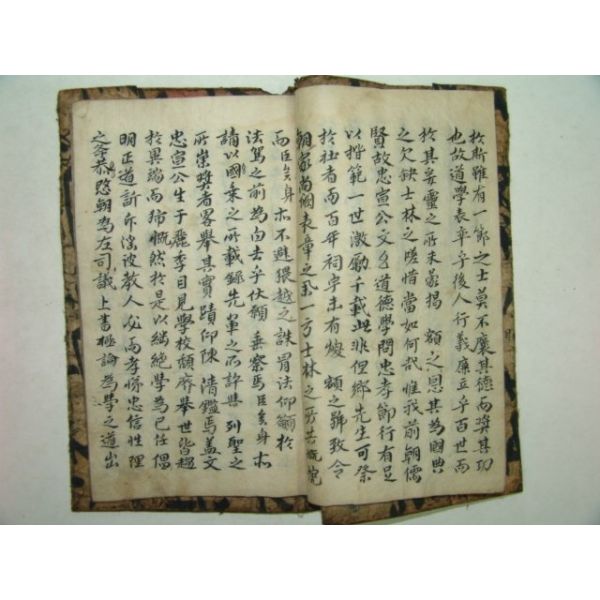 於斯雖有一節之士莫不褒其德而奬其功
也故道學表率乎後人行義廉立乎百世而
於其妥靈之所未蒙揭 額之恩其爲國典
之欠缺士林之嗟惜當如何哉惟我前朝儒
賢故忠宣公文 道德學問忠孝節行有足
以楷範一世激勵千載此非但鄕先生可祭
於社者而百年祠宇未有 額之號致令
朝家尙闕 彛章之 一方士林之所共
而臣矣身 不避猥越之誅冒法仰籲於
法駕之前爲白去乎伏願 垂察焉臣矣身
請以國乘之所載錄先輩之所許與 列聖之
所崇奬者畧擧其實蹟仰陳 淸鑑焉盖文
忠宣公生于麗季目見學校頹廢擧世皆趨
於異端而 慨然於是以繼絶學爲己任倡
明正道訴斥 波敎人 而孝悌忠信性理
之 恭愍朝爲左司議上書極論爲學之道出